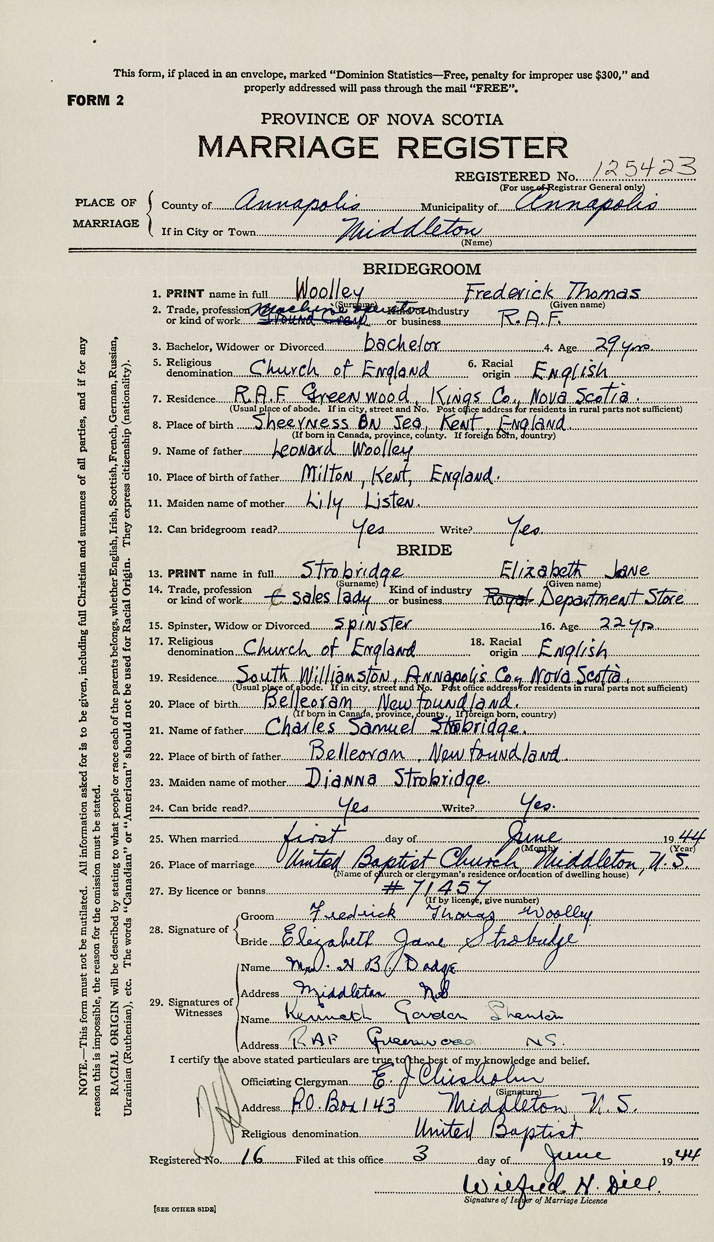 This form, if placed in an envelope, marked "Dominion Statistics—Free, penalty for improper use $300," and
properly addressed will pass through the mail "FREE".
FORM 2
PROVINCE OF NOVA SCOTIA
MARRIAGE REGISTER
REGISTERED No. 125423
(For use of Registrar General only)
PLACE OF MARRIAGE
County of Annapolis Municipality of Annapolis
If in City or Town Middleton
(Name)
BRIDEGROOM
1. PRINT name in full Woolley Frederick Thomas
(Surname) (Given name)
2. Trade, profession or kind of work Kind of industry or business R.A.F.
3. Bachelor, Widower or Divorced bachelor 4. Age 29 yrs
5. Religious denomination Church of England 6. Racial origin English
7. Residence R.A.F. Greenwood, Kings Co., Nova Scotia.
(Usual place of abode. If in city, street and No. Post office address for residents in rural parts not sufficient)
8. Place of birth Sheerness On Sea, Kent, England
(If born in Canada, province, county. If foreign born, country)
9. Name of father Leonard Woolley
10. Place of birth of father Milton, Kent, England.
11. Maiden name of mother Lily Listen.
12. Can bridegroom read? Yes Write? Yes.
BRIDE
13. PRINT name in full Strobridge Elizabeth Jane
(Surname) (Given name)
14. Trade, profession or kind of work sales lady Kind of industry or business Royal Department Store
15. Spinster, Widow or Divorced spinster 16. Age 22 yrs
17. Religious denomination Church of England 18. Racial origin English
19. Residence South Williamston, Annapolis Co., Nova Scotia.
(Usual place of abode. If in city, street and No. Post office address for residents in rural parts not sufficient)
20. Place of birth Belleoram, Newfoundland.
(If born in Canada, province, county. If foreign born, country)
21. Name of father Charles Samuel Strobridge.
22. Place of birth of father Belleoram, Newfoundland.
23. Maiden name of mother Dianna Strobridge.
24. Can bride read? Yes Write? Yes.
25. When married first day of June 1944
(Month) (Year)
26. Place of marriage United Baptist Church Middleton, N.S.
(Name of church or clergyman's residence or location of dwelling house)
27. By licence or banns #71457
(If by licence, give number)
28. Signature of
Groom Fredrick Thomas Woolley
Bride Elizabeth Jane Strobridge
29. Signatures of Witnesses
Name Mrs. H B. Dodge
Address Middleton N.S
Name Kenneth Gordon
Address RAF Greenwood N.S.
I certify the above stated particulars are true to the best of my knowledge and belief.
Officiating Clergyman E. J Chisholm
(Signature)
Address P.O. Box 143 Middleton N.S.
Religious denomination United Baptist
Registered No. 16 Filed at this office 3 day of June 1944
Wilfred H. Dill.
Signature of Issuer of Marriage Licence
[SEE OTHER SIDE]
NOTE.—This form must not be mutilated. All information asked for is to be given, including full Christian and surnames of all parties, and if for any
reason this is impossible, the reason for the omission must be stated.
RACIAL ORIGIN will be described by stating to what people or race each of the parents belongs, whether English, Irish, Scottish, French, German, Russian,
Ukrainian (Ruthenian), etc. The words "Canadian" or "American" should not be used for Racial Origin. They express citizenship (nationality).